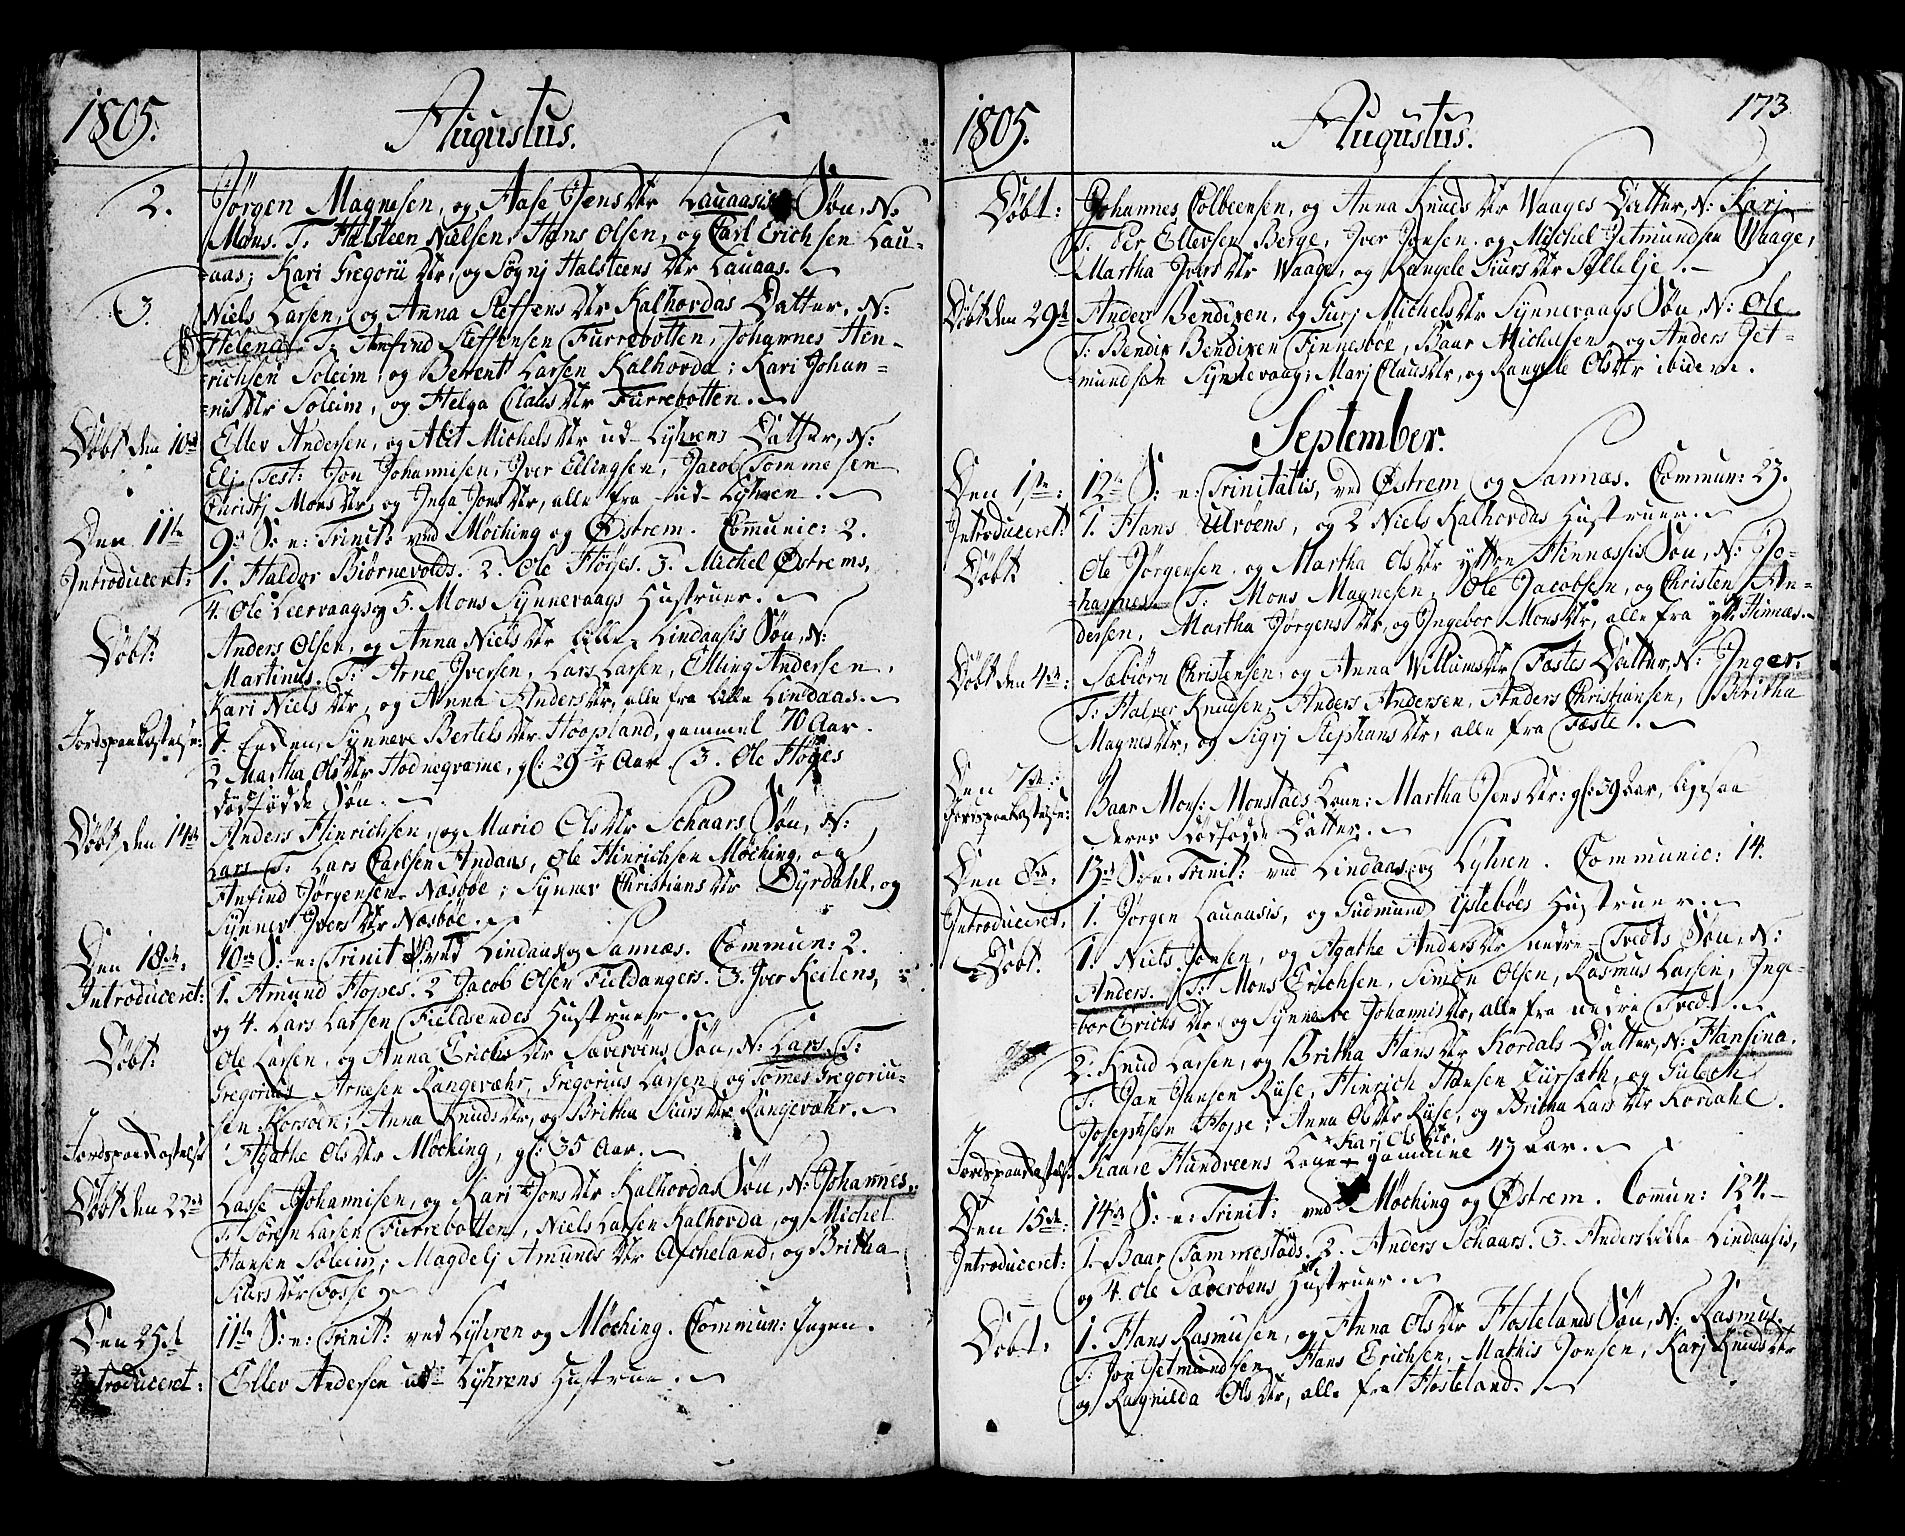 1805. Augustus.
2. Jørgen Magnesen, og Aase Jens Dtr Lauaasis Søn, N:
Mons. T: Halsteen Nielsen, Hans Olsen, og Carl Erichsen Lau-
=aas; Kari Gregorii Dtr, og Søgnj Halsteens Dtr Lauaas.
3. Niels Larsen, og Anna Steffens Dtr Kalhordas Datter, N:
Helena. T: Anfind Steffensen Furrebotten, Johannes Hen-
=richsen Soleim, og Berent Larsen Kalhorda; Kari Johan-
=nis Dtr Soleim, og Helga Claus Dtr Furrebotten.
Døbt den 10de Ellev Andersen, og Alit Michels Dtr ud-Lyhrens Datter, N:
Elj Test: Jon Johannisen, Iver Ellingsen, Jacob Tommesen
Christj Mons Dtr, og Inga Jons Dtr, alle fra ud-Lyhren.
Den 11te 9de S: e: Trinit: ved Møching og Østrem. Communic: 2.
Introduceret: 1. Haldor Biørnevolds. 2. Ole Høijes. 3. Michel Østrems,
4. Ole Leervaags og 5. Mons Synnevaags Hustruer.
Døbt: Anders Olsen, og Anna Niels Dtr Lille-Lindaasis Søn, N:
Martinus. T: Arne Iversen, Lars Larsen, Elling Andersen,
Kari Niels Dtr, og Anna Anders Dtr, alle fra Lille Lindaas.
Jordspaakastelse: 1. Enken, Synneve Bertels Dtr Hoopland, gammel 70 Aar.
2 Martha Ols Dtr Hodnegvame, gl: 29 3/4 Aar. 3. Ole Høijes
dødfødde Søn.
Døbt den 14de Anders Hinrichsen, og Marie Ols Dtr Schaars Søn, N:
Lars. T: Lars Carlsen Andaas, Ole Hinrichsen Møching, og
Anfind Jørgensen Næsbøe; Synnev Christians Dtr Dyrdahl, og
Synnev Ivers Dtr Næsbøe.
Den 18de, 10de S: e: Trinit: ved Lindaas og Sannæs. Commun: 2.
Introduceret: 1. Amund Hopes. 2 Jacob Olsen Fieldangers. 3. Iver Keilens,
og 4. Lars Larsen Fieldsendes Hustruer.
Døbt: Ole Larsen, og Anna Erichs Dtr Sæverøens Søn, N: Lars. T:
Gregorius Arnesen Rangevæhr, Gregorius Larsen, og Tomes Gregoriu-
sen Korsøen; Anna Knuds Dtr, og Britha Siurs Dtr Rangevæhr.
Jordspaakastelse Agathe Ols Dtr Møching, gl: 35 Aar.
Døbt den 22de Lasse Johannisen, og Kari Jons Dtr Kalhordas Søn, N: Johannes.
T: Søren Larsen Furrebotten, Niels Larsen Kalhorda, og Michel
Hansen Soleim; Magdelj Amunds Dtr Afcheland, og Britha
Siurs Dtr Fosse
Den 25de 11te S: e: Trinit: ved Lyhren og Møching. Commun: Ingen.
Introduceret: Ellev Andersen ud-Lyhrens Hustrue.
1805. Augustus. 173
Døbt: Johannes Colbeensen, og Anna Knuds Dtr Waages Datter, N: Karj
T: Per Ellevsen Berge, Iver Jonsen og Michel Jetmundsen Waage,
Martha Ivers Dtr Waage, og Rangele Siurs Dtr Sellelje.
Døbt den 29de Anders Bendixen, og Gurj Michels Dtr Synnevaags Søn, N: Ole
T: Bendix Bendixen Finnesbøe, Baar Michelsen, og Anders Jet-
=mundsen Synnevaag; Marj Claus Dtr, og Rangele Ols Dtr ibidem.
September.
Den 1te: 12te S: e: Trinitatis, ved Østrem og Sannæs. Commun: 23.
Introduceret: 1. Hans Ulvøens, og 2 Niels Kalhordas Hustruer.
Døbt: Ole Jørgensen, og Martha Ols Dtr ytten Hinnæssis Søn, N: Jo-
=hannes. T: Mons Magnesen, Ole Jacobsen, og Christen An-
dersen, Martha Jørgens Dtr, og Ingebor Mons Dtr, alle fra yt: Hinnæs.
Døbt den 4de: Sæbiørn Christensen, og Anna Willums Dtr Fæstes Datter, N: Inger.
T: Halvor Knudsen, Anders Andersen, Anders Christiansen, Britha
Magnes Dtr, og Sigrj Stephans Dtr, alle fra Fæste.
Den 7de:
Jordspaakastelse: Baar Mons: Monstads Kone: Martha Jens Dtr: gl: 39 Aar, ligesaa
deres dødfødde Datter.
Den 8de, 13de S: e: Trinit: ved Lindaas og Lyhren. Communic: 14.
Introduceret, 1. Jørgen Lauaasis, og Gudmund Ystebøes Hustruer.
Døbt. 1. Niels Jensen, og Agathe Anders Dtr nedre-Tvedts Søn, N:
Anders. T: Mons Erichsen, Simon Olsen, Rasmus Larsen, Inge-
=bor Erichs Dtr, og Synneve Johannis Dtr, alle fra nedre Tvedt.
2. Knud Larsen, og Britha Hans Dtr Kordals Datter, N: Hansina.
T: Jan Jansen Rise, Hinrich Hansen Fyrsæth, og Gulech
Josephsen Hope; Anna Ols Dtr Rise, og Britha Lars Dtr Kordahl.
Karj Ols Dtr,
Jordspaakastelse: Kaare Hundveens Kone gammene 43 Aar.
Den 15de: 14de S: e: Trinit: ved Møching og Østrem. Commun: 124.
Introduceret: 1. Baar Tammestads. 2. Anders Schaars. 3. Anders Lille Lindaasis,
og 4. Ole Sæverøens Hustruer.
Døbt: 1. Hans Rasmusen, og Anna Ols Dtr Hostelands Søn, N: Rasmus.
T: Jon Jetmundsen, Hans Erichsen, Mathis Jonsen, Karj Knuds Dtr
og Ragnilda Ols Dtr, alle fra Hosteland.